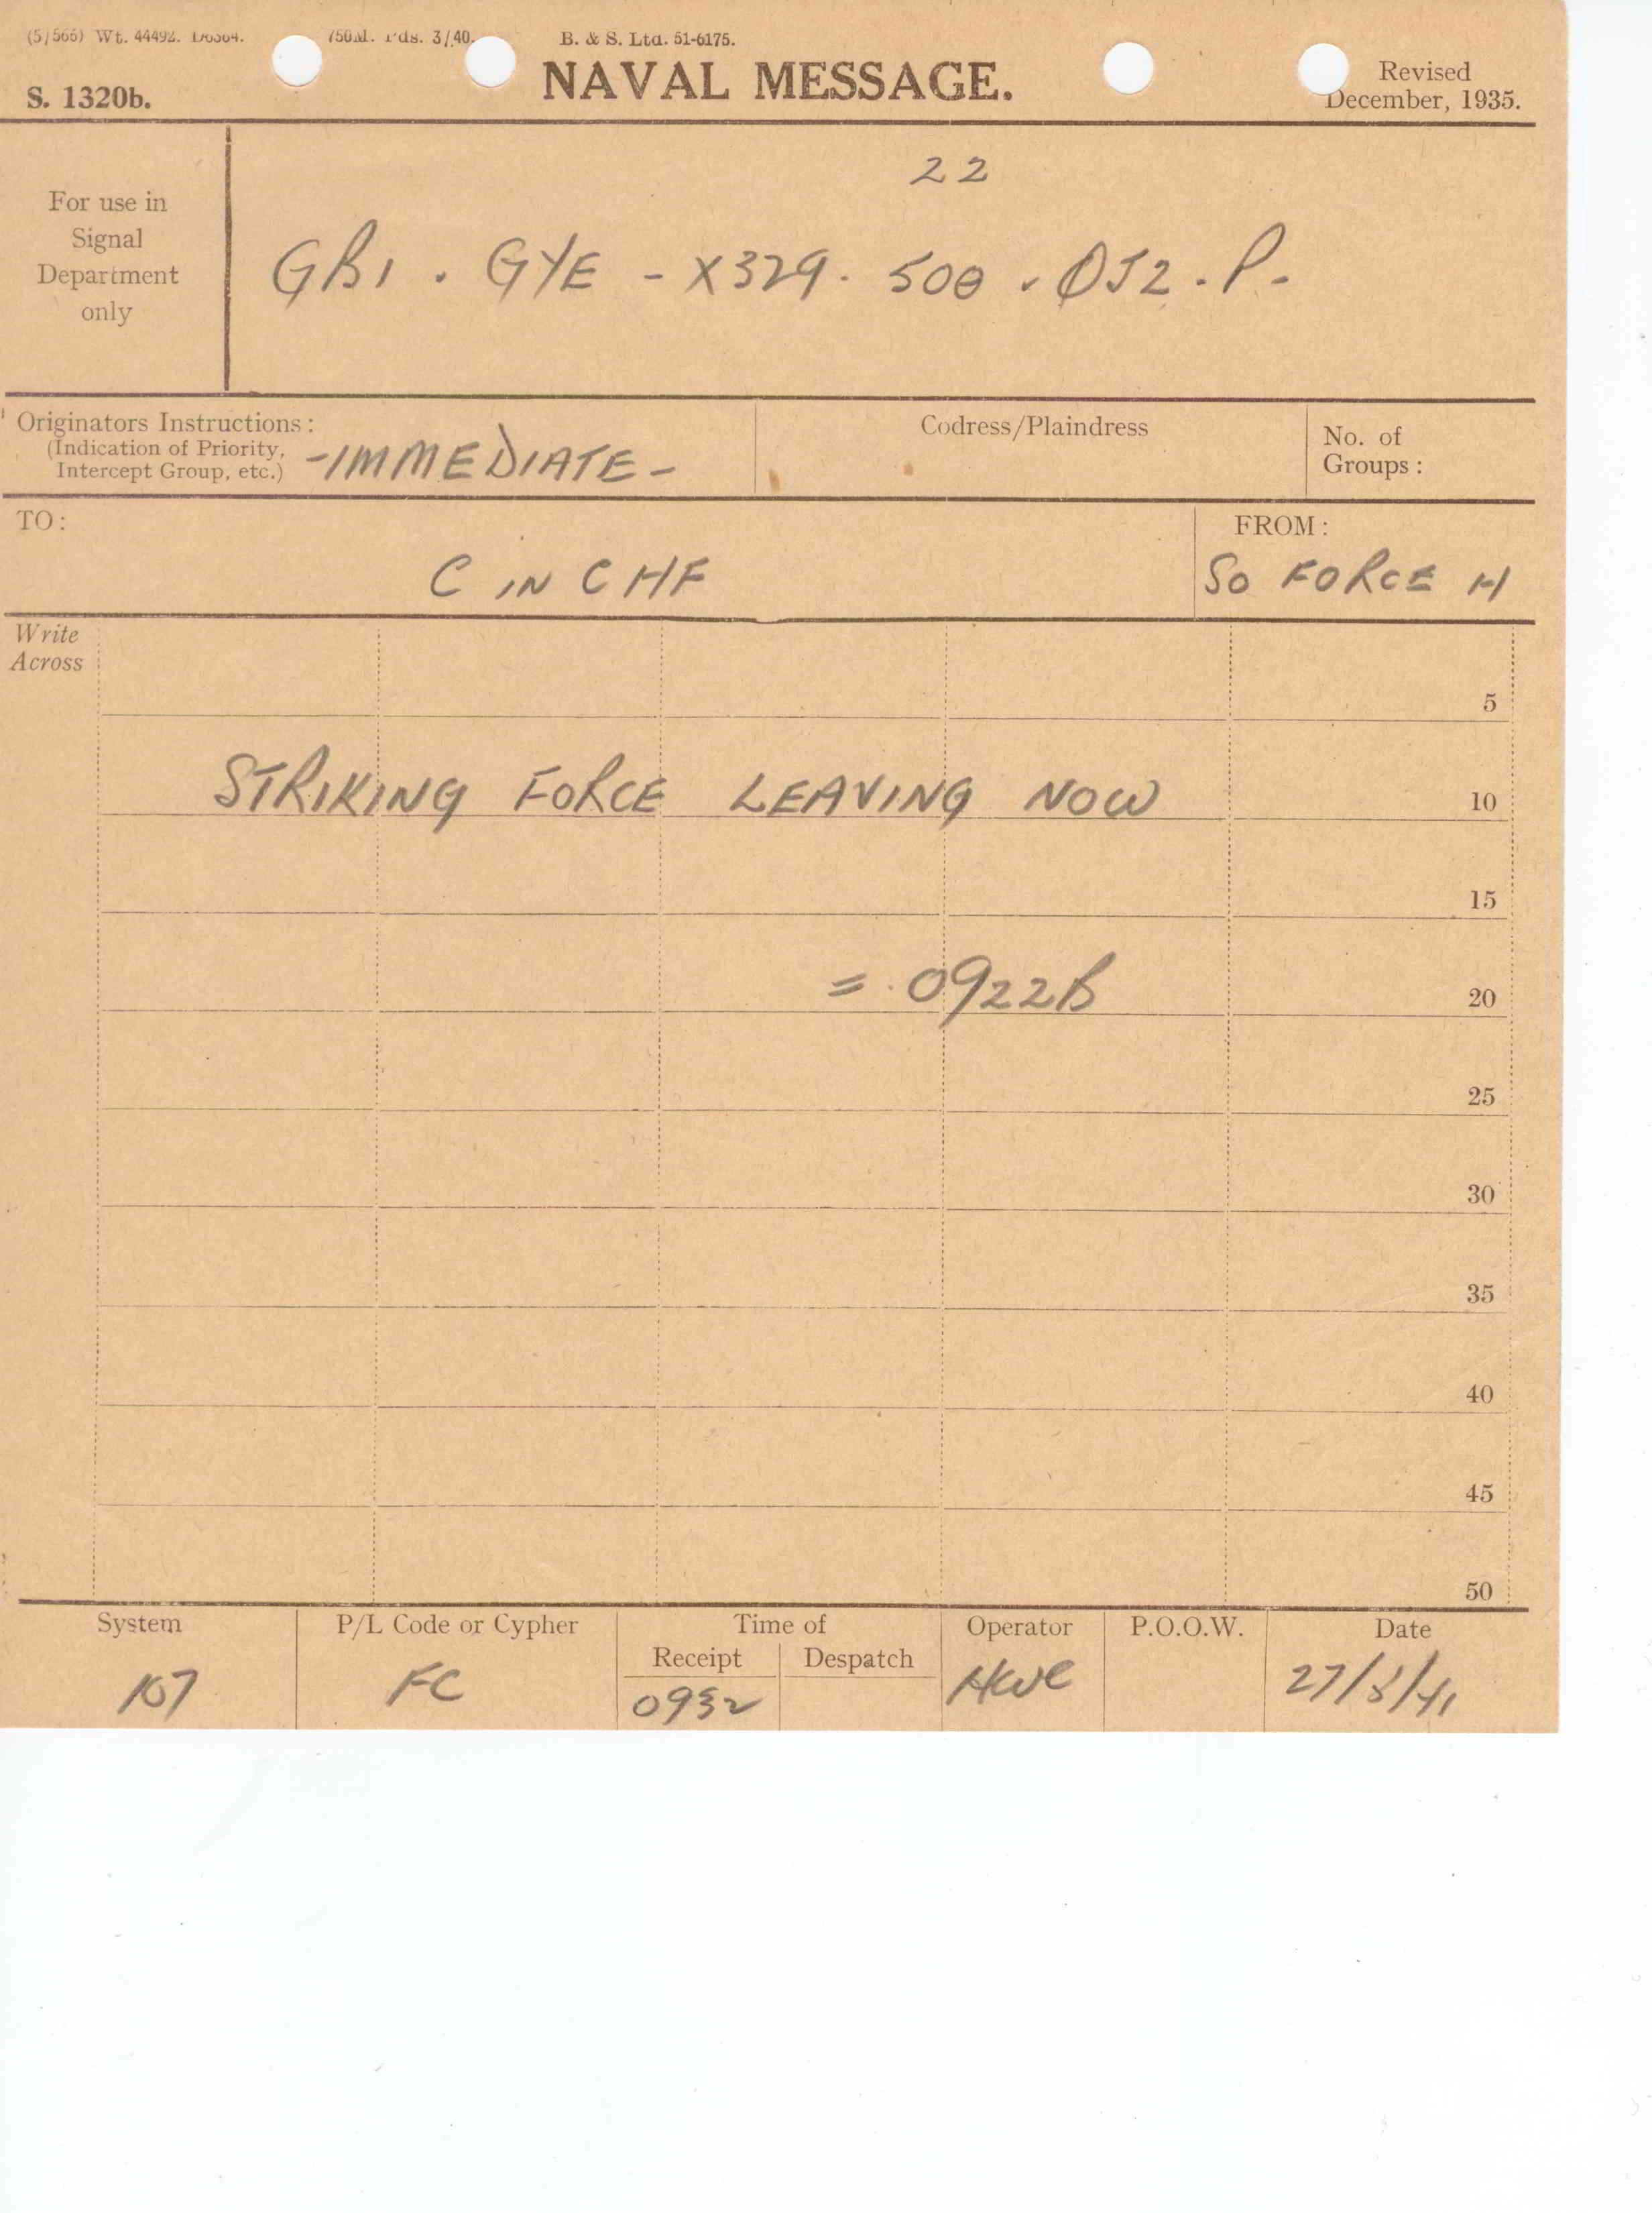 (5/566) Wt. 44492. 750M. Pds. 3/40. B. & S. Ltd. 51-6175.
S. 1320b.
NAVAL MESSAGE.
Revised
December, 1935.
For use in
Signal
Department
only
22
GB1 . GYE - X329 . 500 . 0J2 . P .
Originators Instructions :
(Indication of Priority,
Intercept Group, etc.)
-IMMEDIATE-
Codress/Plaindress
No. of
Groups :
TO :
C IN C HF
FROM :
SO FORCE H
Write
Across
5
STRIKING FORCE LEAVING NOW
10
15
= 0922B
20
25
30
35
40
45
50
System
P/L Code or Cypher
Time of
Receipt
Despatch
Operator
P.O.O.W.
Date
107
FC
0932
27/5/41